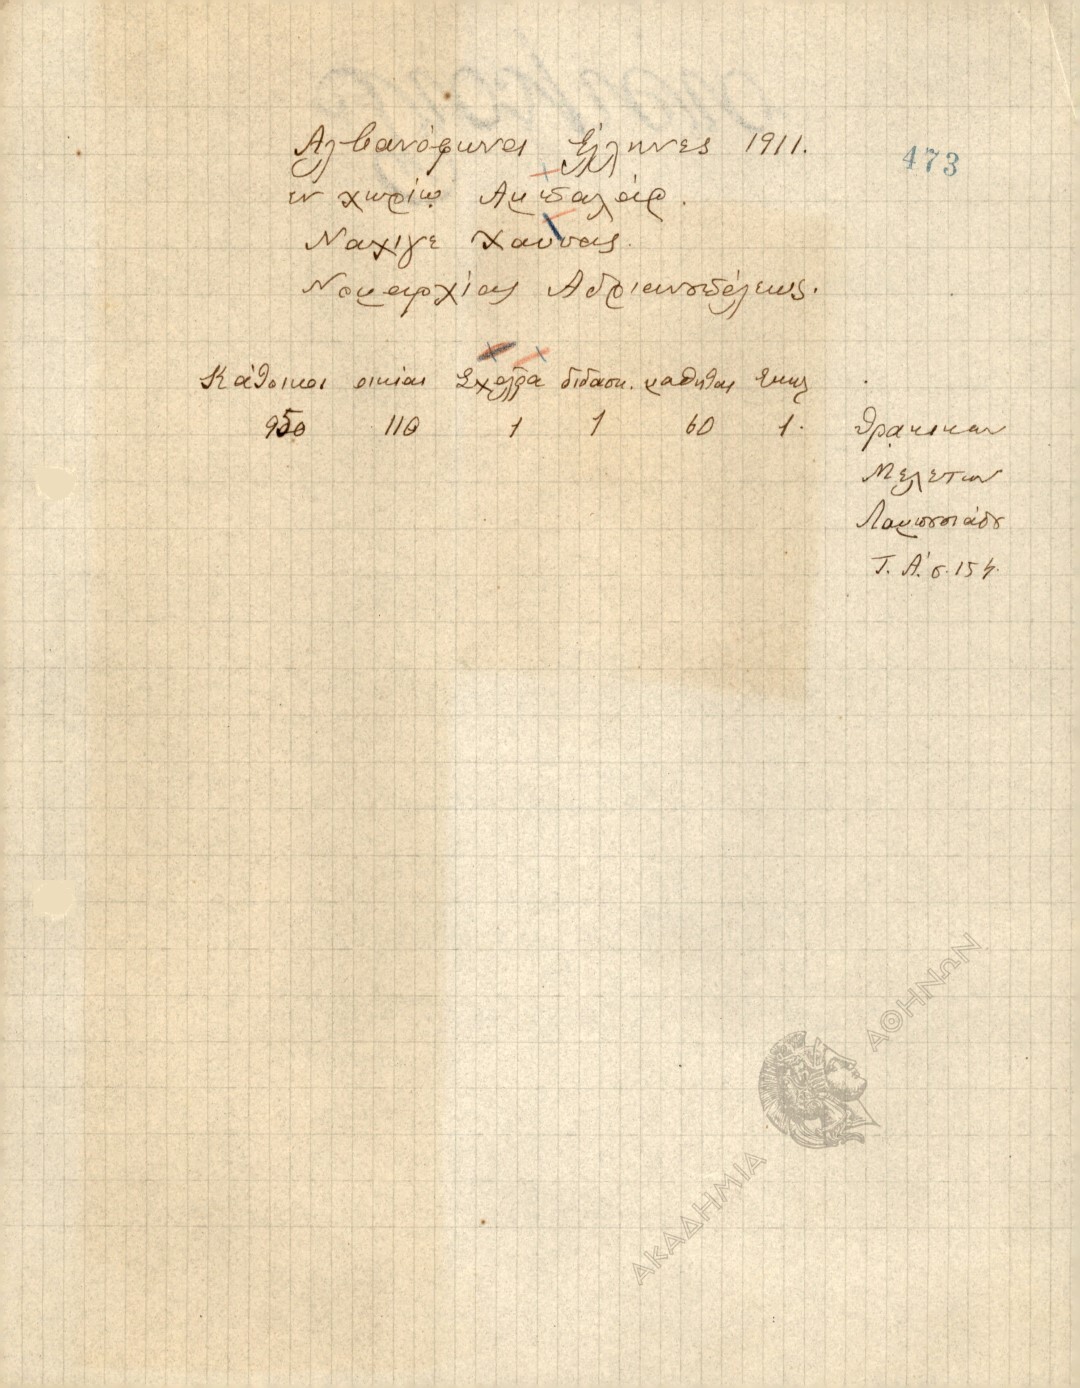 473
Αλβανόφωνοι Έλληνες 1911.
εν χωρίω Αμπαλάρ.
Ναχιγέ Χάψσας.
Νομαρχίας Αδριανουπόλεως.
Κάθοικοι οικίαι Σχολεία διδασκ. μαθηταί εκκλ
950 110 1 1 60 1.
Θρακικών
Μελετών
Λαμπουσιάδου
Τ. Α΄. σ. 154.
ΑΚΑΔΗΜΙΑ ΑΘΗΝΩΝ